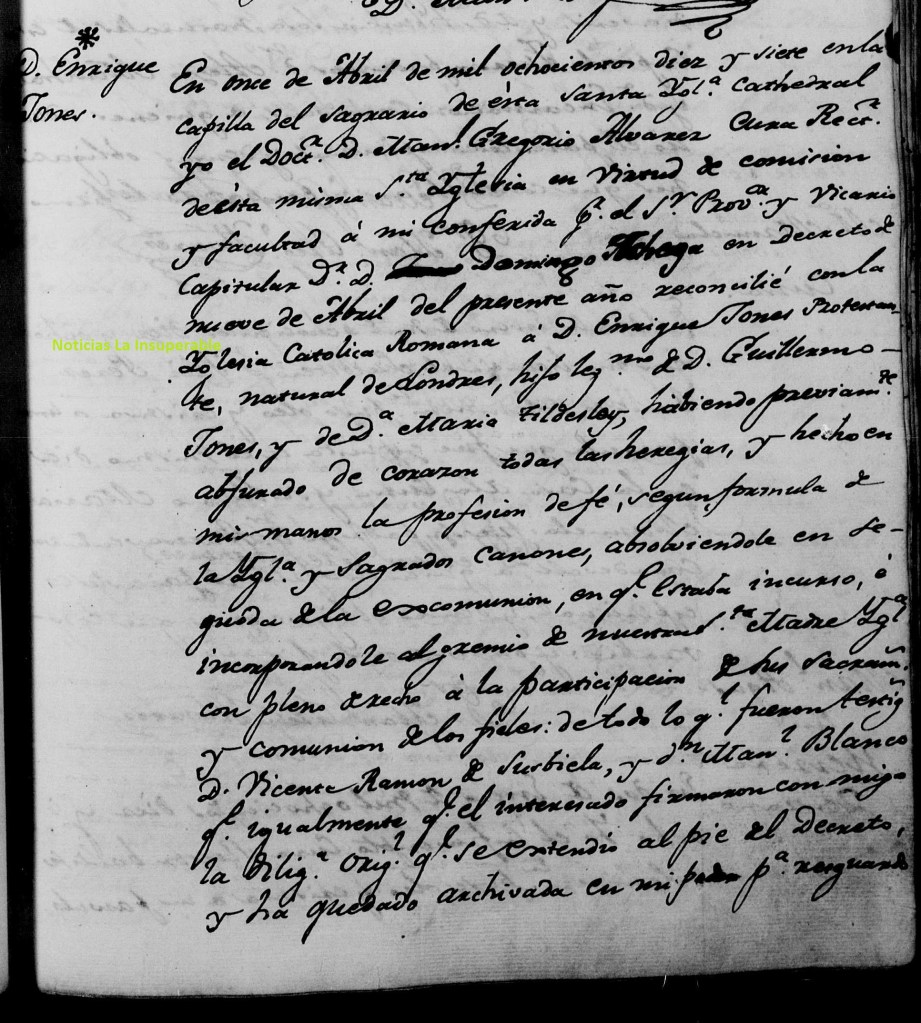 D. Enrique
Jones.
En once de Abril de mil ochocientos diez y siete en la
capilla del sagrario de ésta Santa Ygl.ª Cathedral
yo el Doct.r D. Man.l Gregorio Alvarez Cura Rect.r
de ésta misma S.ta Yglesia en virtud de comision
y facultad á mi conferida p.r el S.r Prov.or y Vicario
Capitular D.r D. Domingo Achega en Decreto de
nueve de Abril del presente año reconcilié con la
Noticias La Insoperable
Yglesia Catolica Romana á D. Enrique Jones Protestan-
te, natural de Londres, hijo leg.mo de D. Guillermo
Jones, y de D.ª Maria Tildesley, habiendo previam.te
abjurado de corazon todas las heregias, y hecho en
mis manos la profesion de fé, segun formula de
la Ygl.ª y Sagrados Canones, absolviendole en se-
guida de la excomunion, en q.e estaba incurso, é
incorporandole al gremio de nuestra S.ta Madre Ygl.ª
con pleno derecho á la participacion de sus Sacram.
y comunion de los fieles: de todo lo q.l fueron testig
D. Vicente Ramon de Surbiela, y d.n Man.l Blanco
q.e igualmente q.e el interesado firmaron conmigo
la dilig.ª orig.l q.e se extendió al pie del Decreto,
y ha quedado archivada en mi poder p.ª resguardo